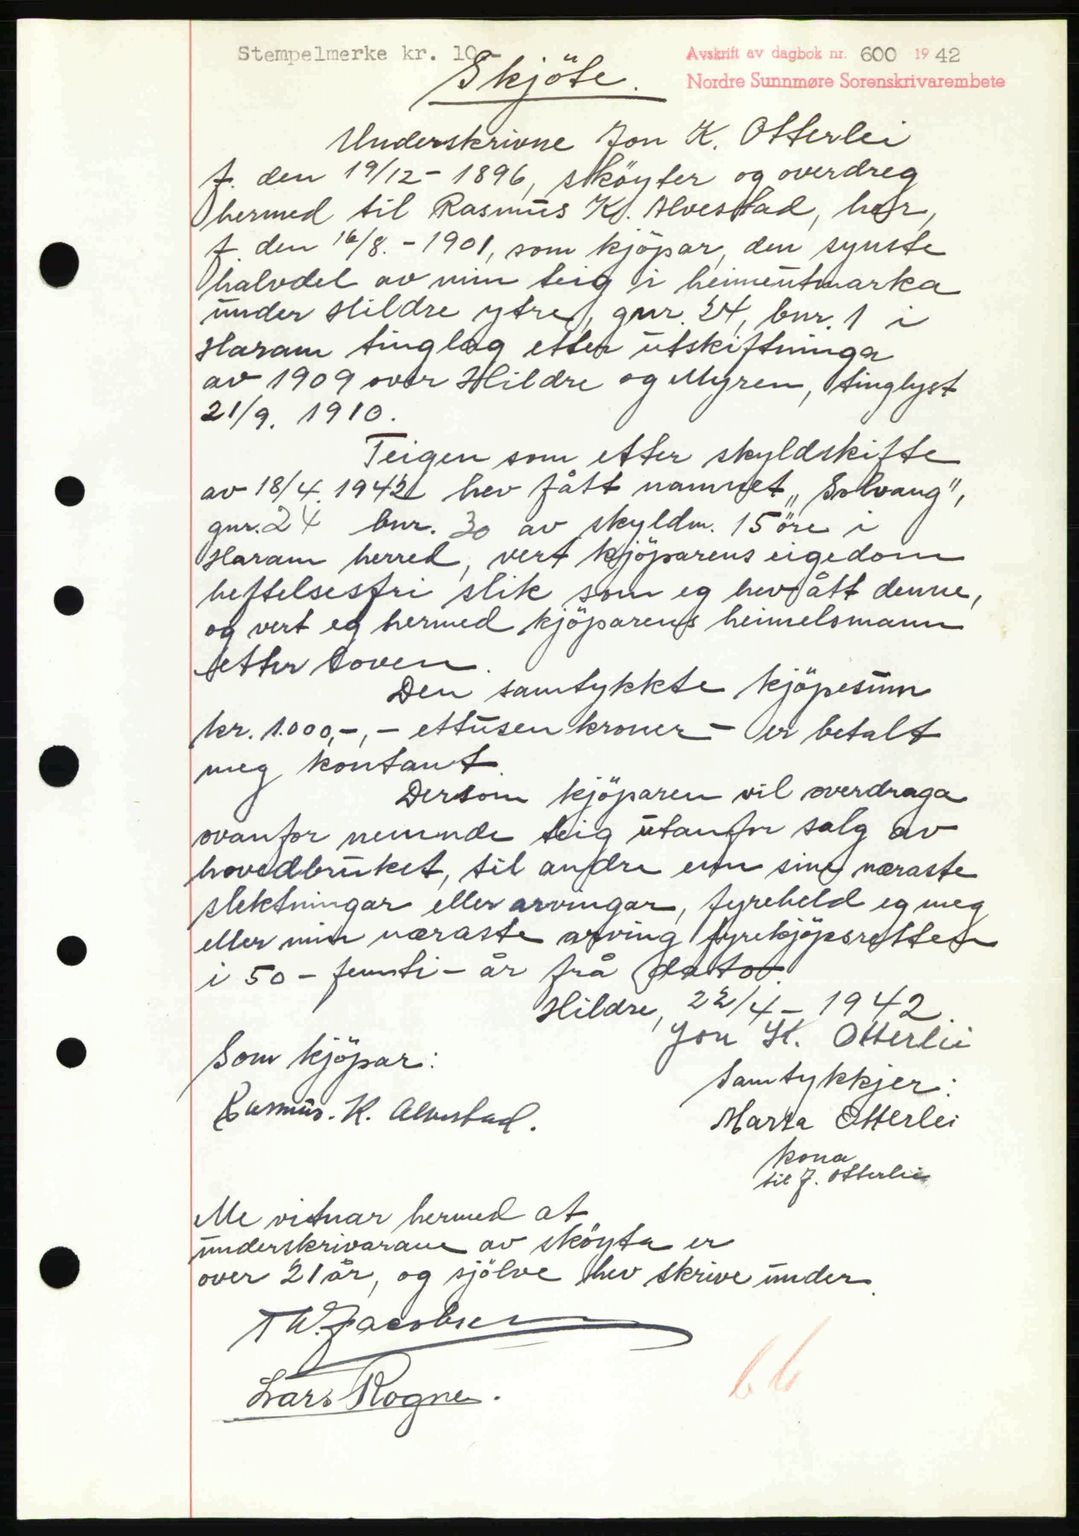 Stempelmerke kr. 10
Avskrift av dagbok nr. 600 1942
Nordre Sunnmøre Sorenskrivarembete
Skjöte.
Underskrivne Jon K. Otterlei
f. den 19/12 - 1896, sköyter og overdreg
hermed til Rasmus K. Alvestad, her,
f. den 16/8. - 1901, som kjöpar, den synste
halvdel av min teig i heimeutmarka
under Hildre ytre, gnr. 24, bnr. 1 i
Haram tinglag etter utskiftninga
av 1909 over Hildre og Myren, tinglyst
21/9. 1910.
Teigen som etter skyldskifte
av 18/4. 1942 hev fått namnet „Solvang”,
gnr. 24 bnr. 30 av skyldm. 15 öre i
Haram herred, vert kjöparens eigedom
heftelsesfri slik som eg hevått denne,
og vert eg hermed kjöparens heimelsmann
etter loven.
Den samtykkte kjöpesum
kr. 1.000,-,- ettusen kroner - er betalt
meg kontant.
Dersom kjöparen vil overdraga
ovanfor nemnde teig utanfor salg av
hovedbruket, til andre enn sine næraste
slektningar eller arvingar, fyreheld eg meg
eller min næraste arving fyrekjöpsretten
i 50 - femti - år frå dato.
Hildre, 22/4 - 1942.
Jon K. Otterlei
Som kjöpar:
Samtykkjer:
Rasmus. K. Alvestad.
Marta Otterlei
kona
til J. Otterlei
Me vitnar hermed at
underskrivarane av sköyta er
over 21 år, og sjölve hev skrive under.
T W. Jacobsen
Lars Rogne.